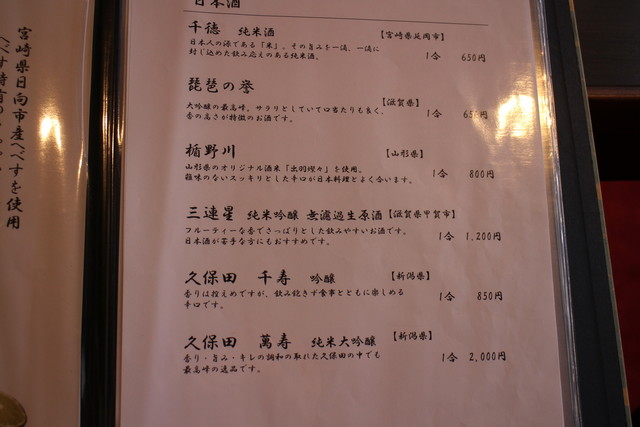 日本酒
千徳 純米酒 【宮崎県延岡市】
日本人の源である「米」。その旨みを一滴、一滴に
封じ込めた飲み応えのある純米酒。
1合 650円
琵琶の誉 【滋賀県】
大吟醸の最高峰。サラリとしていて口当たりも良く、
香の高さが特徴のお酒です。
1合 650円
楯野川 【山形県】
山形県のオリジナル酒米「出羽燦々」を使用。
雑味のないスッキリとした辛口が日本料理とよく合います。
1合 800円
三連星 純米吟醸 無濾過生原酒 【滋賀県甲賀市】
フルーティーな香でさっぱりとした飲みやすいお酒です。
日本酒が苦手な方にもおすすめです。
1合 1,200円
久保田 千寿 吟醸 【新潟県】
香りは控えめですが、飲み飽きず食事とともに楽しめる
辛口です。
1合 850円
久保田 萬寿 純米大吟醸 【新潟県】
香り・旨み・キレの調和の取れた久保田の中でも
最高峰の逸品です。
1合 2,000円
宮崎県日向市産へべすを使用
へべす特有の